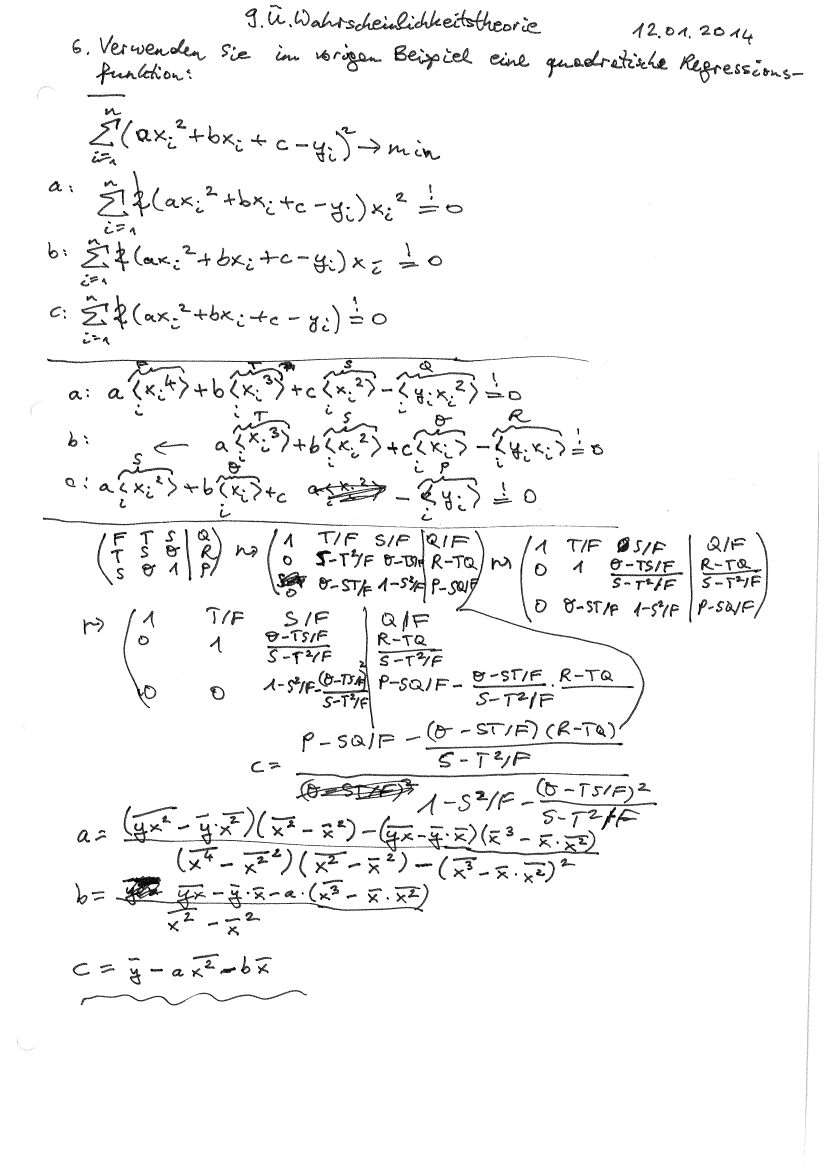 9. Ü. Wahrscheinlichkeitstheorie 12.01.2014
6. Verwenden Sie im vorigen Beispiel eine quadratische Regressions-
funktion:
n
∑(axᵢ² + bxᵢ + c − yᵢ)² → min
i=1
a: n
∑ 2(axᵢ² + bxᵢ + c − yᵢ)xᵢ² != 0
i=1
b: n
∑ 2(axᵢ² + bxᵢ + c − yᵢ)xᵢ != 0
i=1
c: n
∑ 2(axᵢ² + bxᵢ + c − yᵢ) != 0
i=1
F T S Q
a: a⟨xᵢ⁴⟩ + b⟨xᵢ³⟩ + c⟨xᵢ²⟩ − ⟨yᵢxᵢ²⟩ != 0
i i i i
T S θ R
b: ← a⟨xᵢ³⟩ + b⟨xᵢ²⟩ + c⟨xᵢ⟩ − ⟨yᵢxᵢ⟩ != 0
i i i i
S θ P
c: a⟨xᵢ²⟩ + b⟨xᵢ⟩ + c − ⟨yᵢ⟩ != 0
i i i
(F T S | Q) ⇝ (1 T/F S/F | Q/F) ⇝ (1 T/F S/F | Q/F)
(T S θ | R) (0 S−T²/F θ−TS/F | R−TQ) (0 1 (θ−TS/F)/(S−T²/F) | (R−TQ)/(S−T²/F))
(S θ 1 | P) (0 θ−ST/F 1−S²/F | P−SQ/F) (0 θ−ST/F 1−S²/F | P−SQ/F)
⇝ (1 T/F S/F | Q/F)
(0 1 (θ−TS/F)/(S−T²/F) | (R−TQ)/(S−T²/F))
(0 0 1−S²/F−(θ−TS/F)²/(S−T²/F) | P−SQ/F − (θ−ST/F)/(S−T²/F) · R−TQ)
c = (P−SQ/F − (θ−ST/F)(R−TQ)/(S−T²/F)) / (1−S²/F − (θ−TS/F)²/(S−T²/F))
a = ((y̅x̅²̅ − y̅·x̅²̅)(x̅²̅ − x̅²) − (y̅x̅ − y̅·x̅)(x̅³ − x̅·x̅²̅)) / ((x̅⁴̅ − x̅²̅²)(x̅²̅ − x̅²) − (x̅³̅ − x̅·x̅²̅)²)
b = (y̅x̅ − y̅·x̅ − a·(x̅³̅ − x̅·x̅²̅)) / (x̅²̅ − x̅²)
c = y̅ − a x̅²̅ − b x̅